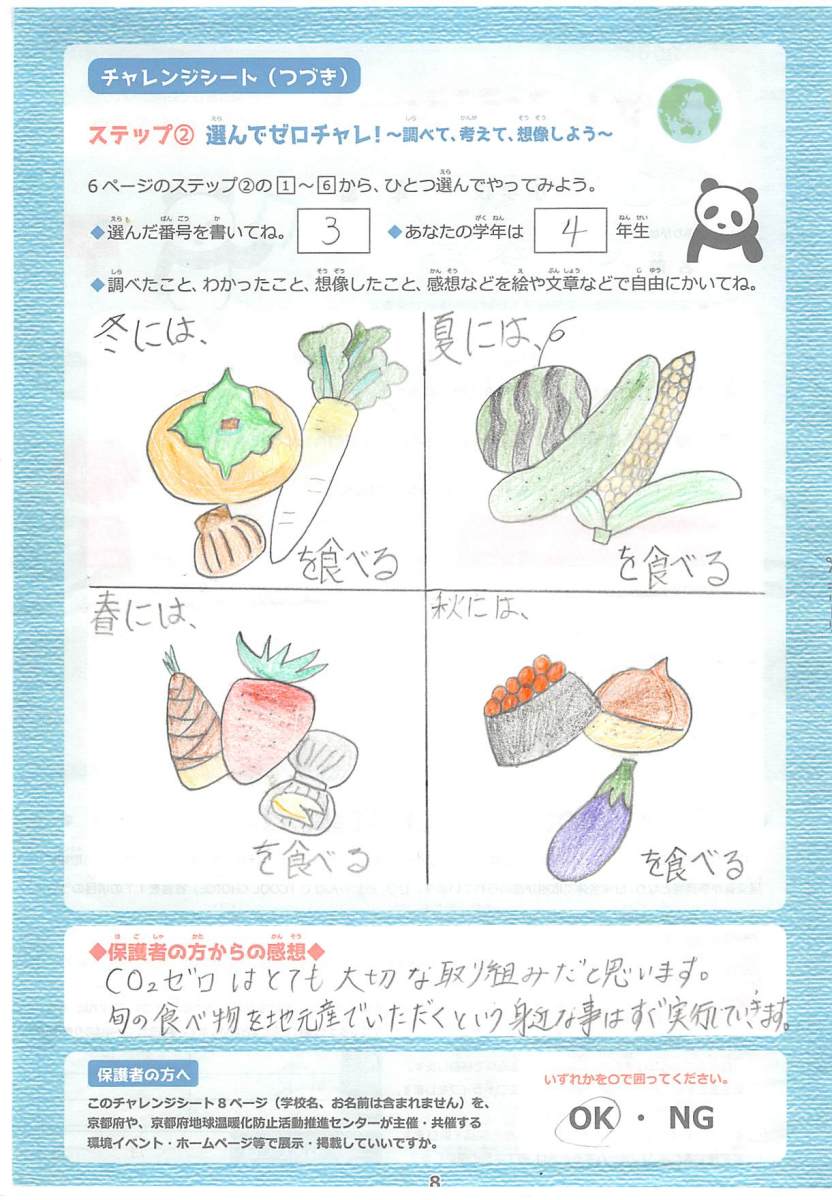 チャレンジシート（つづき）
ステップ② 選んでゼロチャレ！～調べて、考えて、想像しよう～
6ページのステップ②の1～6から、ひとつ選んでやってみよう。
◆選んだ番号を書いてね。 3 ◆あなたの学年は 4 年生
◆調べたこと、わかったこと、想像したこと、感想などを絵や文章などで自由にかいてね。
冬には、
を食べる
夏には、
を食べる
春には、
を食べる
秋には、
を食べる
◆保護者の方からの感想◆
CO₂ゼロはとても大切な取り組みだと思います。
旬の食べ物を地元産でいただくという身近な事はすぐ実行していきます。
保護者の方へ
いずれかを○で囲ってください。
このチャレンジシート8ページ（学校名、お名前は含まれません）を、
京都府や、京都府地球温暖化防止活動推進センターが主催・共催する
環境イベント・ホームページ等で展示・掲載していいですか。
OK ・ NG
8